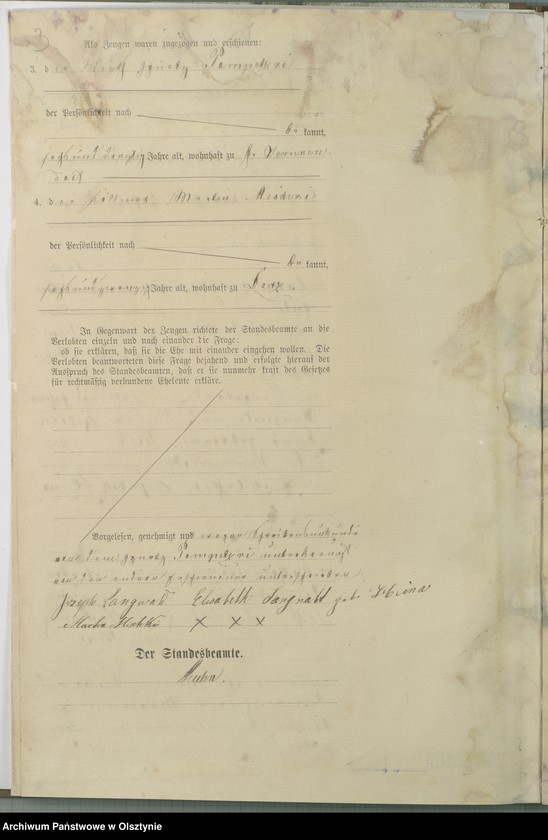 3
Als Zeugen waren zugezogen und erschienen:
3. der Ignatz Pempelski
der Persönlichkeit nach
be kannt,
Jahre alt, wohnhaft zu Gr.
dorf
4. der Martin
der Persönlichkeit nach
be kannt,
sechsundzwanzig Jahre alt, wohnhaft zu
In Gegenwart der Zeugen richtete der Standesbeamte an die
Verlobten einzeln und nach einander die Frage:
ob sie erklären, daß sie die Ehe mit einander eingehen wollen. Die
Verlobten beantworteten diese Frage bejahend und erfolgte hierauf der
Ausspruch des Standesbeamten, daß er sie nunmehr kraft des Gesetzes
für rechtmäßig verbundene Eheleute erkläre.
Vorgelesen, genehmigt und wegen Schreibensunkunde
von dem Ignatz Pempelski unterkreuzt
von den andern Erschienenen unterschrieben
Joseph Langnatt Elisabeth Langnatt geb.
X X X
Der Standesbeamte.
Archiwum Państwowe w Olsztynie